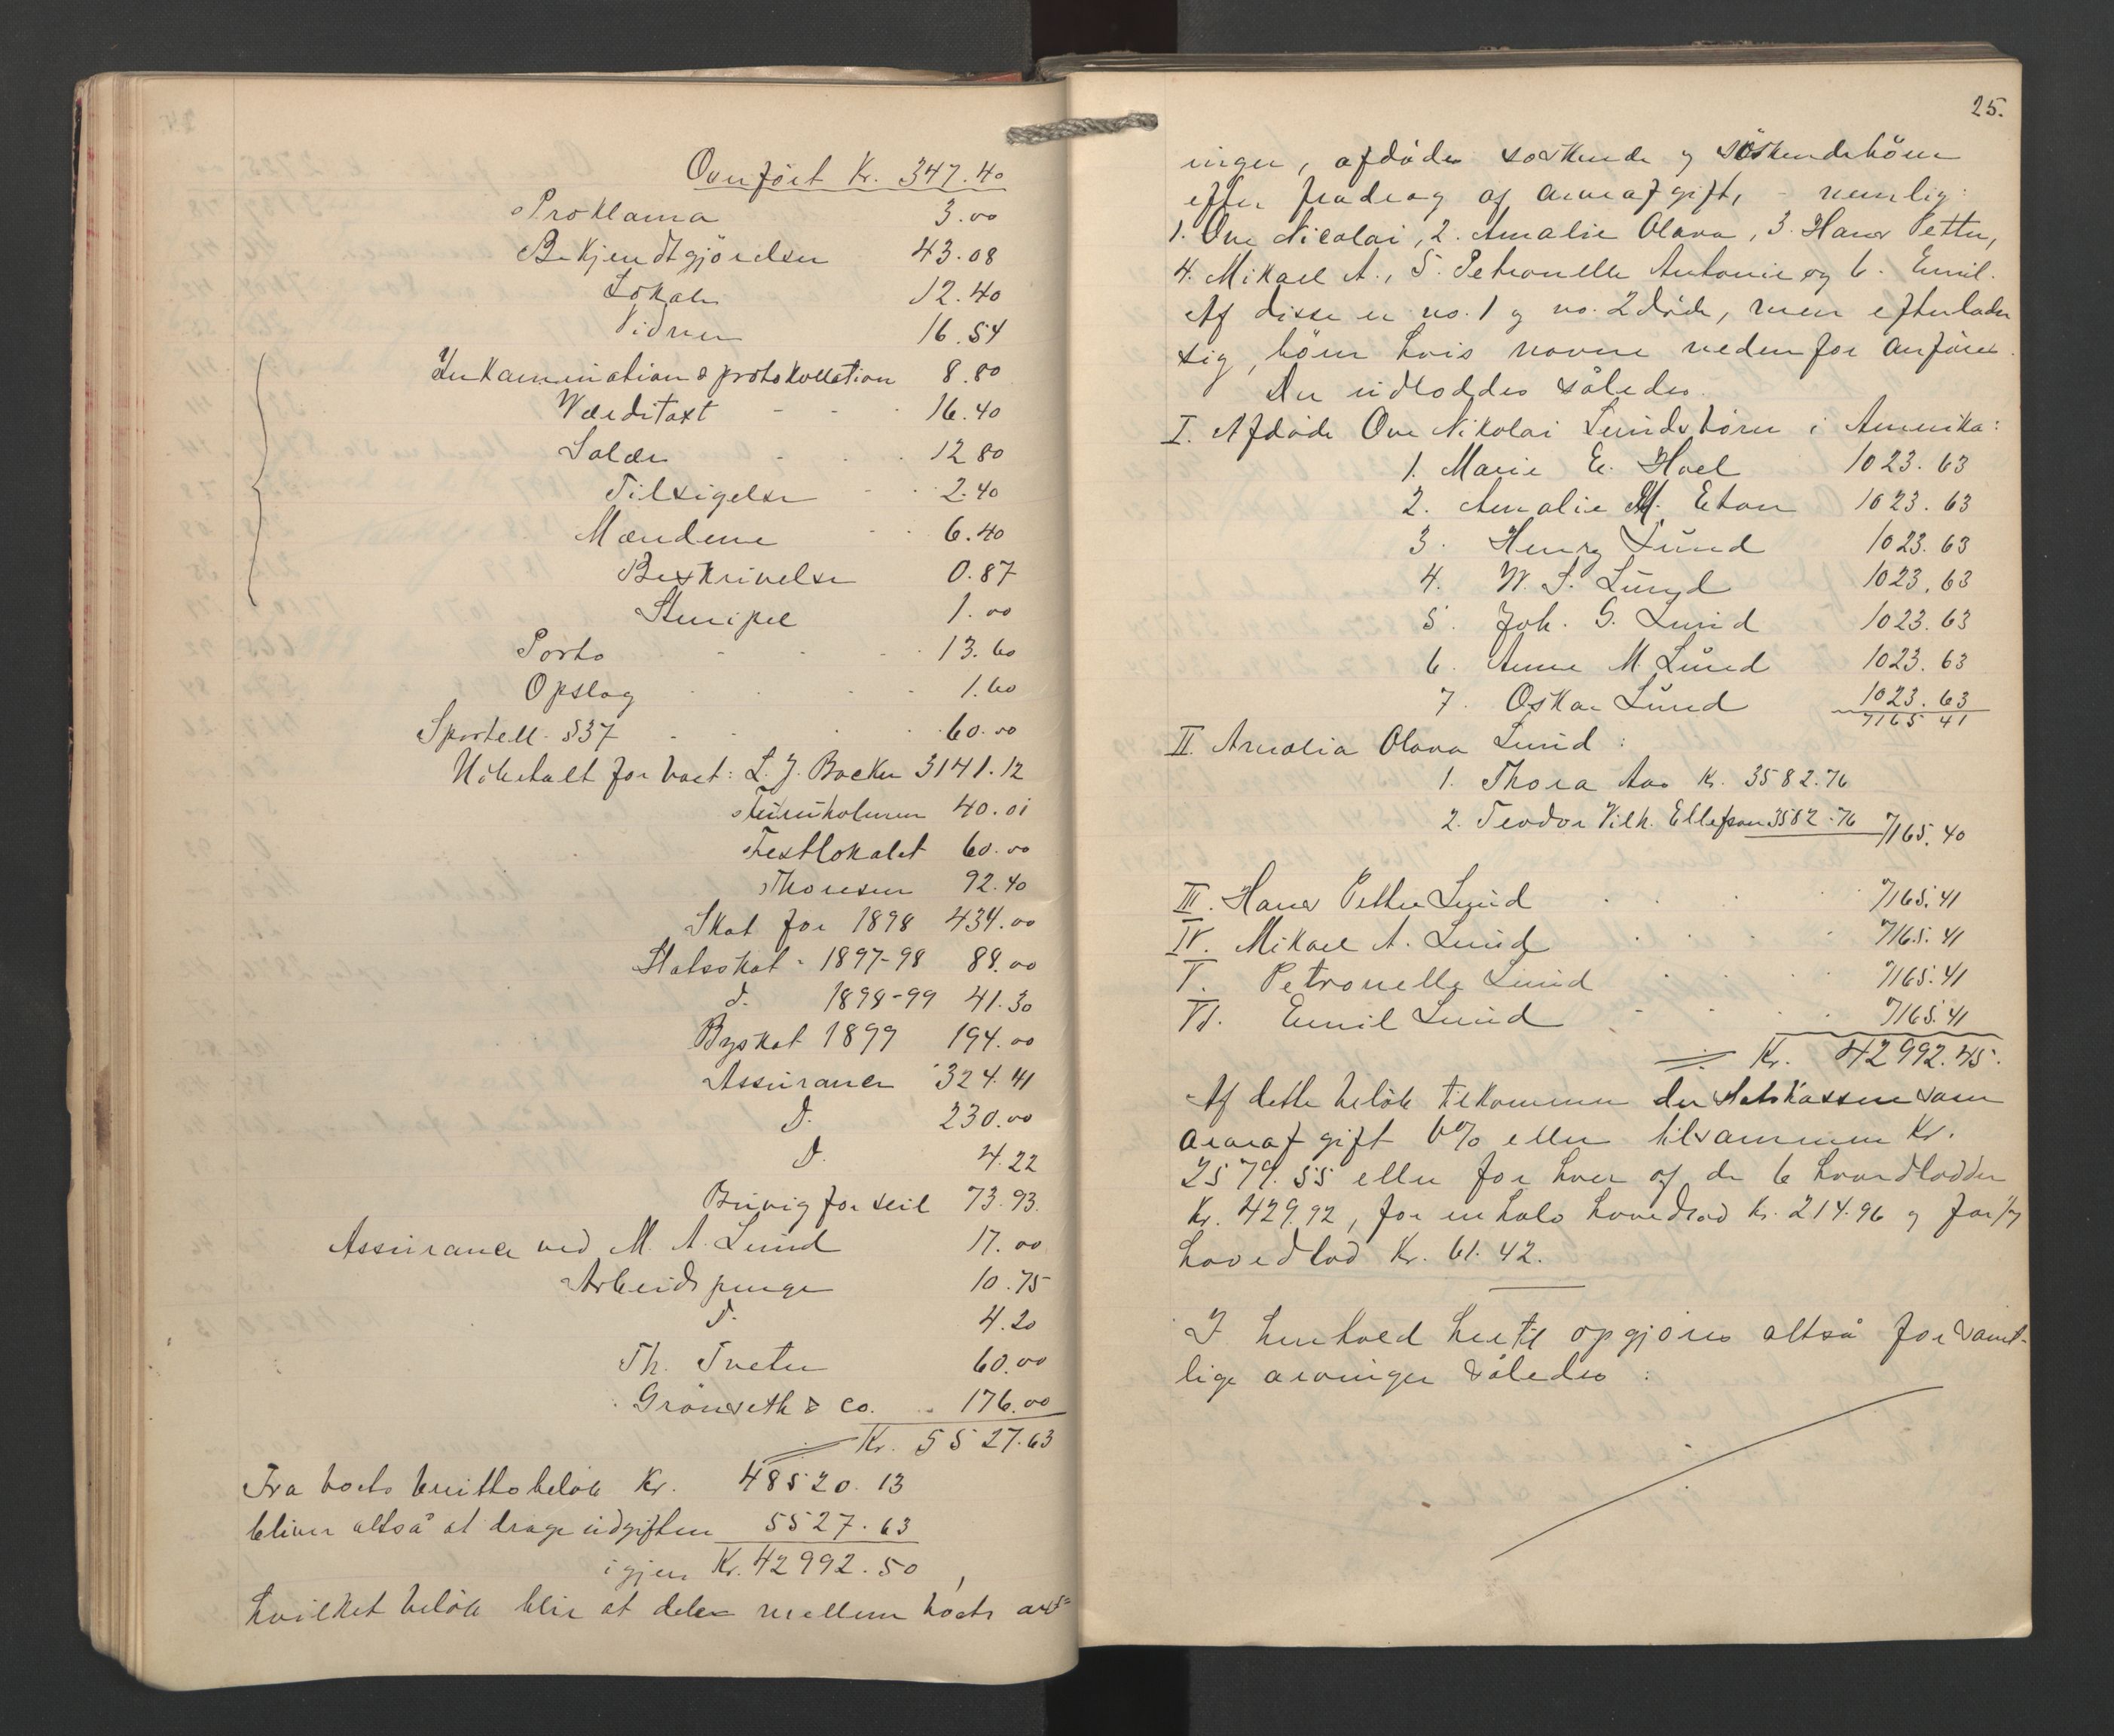 Overført Kr. 347.40
Proklama 3.00
Bekjendtgjörelser 43.08
Lokale 12.40
Vidner 16.54
Inkamination & protokollation 8.80
Værditaxt - - - 16.40
Salær - - - 12.80
Tilsigelse - - 2.40
Mændene - - 6.40
Beskrivelse 0.87
Stempel 1.00
Porto - - - 13.60
Opslag - - - 1.60
Sportell. §37 - - - 60.00
Udbetalt for boet: L. J. Backer 3141.12
40.01
Festlokalet 60.00
Thoresen 92.40
Skat for 1898 434.00
Statsskat - 1897-98 88.00
d. 1898-99 41.30
Byskat 1899 194.00
Assurance 324.41
D. 230.00
D. 4.22
for seil 73.93.
Assurance ved M. A. Lund 17.00
Arbeidspenge 10.75
D. 4.20
Th. Tveter 60.00
Grönseth & co. 176.00
Kr. 5527.63
Fra boets bruttobeløb Kr. 48520.13
bliver altså at drage udgiften 5527.63
igjen Kr. 42992.50,
hvilket beløb blir at dele mellem boets arv-
25.
inger, afdødes søskende og søskendebörn
efter fradrag af arveafgift, - nemlig:
1. Ove Nicolai, 2. Amalie Olava, 3. Hans Petter,
4. Mikael A., 5. Petronelle Antonie og 6. Emil.
Af disse er no. 1 og no. 2 døde, men efterlader
sig börn hvis navne nedenfor anføres.
Der udloddes således.
I. Afdøde Ove Nikolai Lunds börn i Amerika:
1. Marie E. Hoel 1023.63
2. Amalie M. Eton 1023.63
3. Henry Lund 1023.63
4. W. S. Lund 1023.63
5. Joh. G. Lund 1023.63
6. Anne M. Lund 1023.63
7. Oskar Lund 1023.63
7165 41
II. Amalia Olava Lund:
1. Thora Aas Kr. 3582.76
2. Teodor Vilh. Ellefsen 3582.76 7165.40
III. Hans Petter Lund . . . 7165.41
IV. Mikael A. Lund . . . 7165.41
V. Petronelle Lund . . . 7165.41
VI. Emil Lund - - . 7165.41
Kr. 42992.45.
Af dette beløb tilkommer der statskassen som
arveafgift 6% eller tilsammen Kr.
2579.55 eller for hver af de 6 hovedlodder
Kr. 429.92, for en halv hovedlod Kr. 214.96 og for 1/7
hovedlod Kr. 61.42.
I henhold hertil opgjöres altså for samt-
lige arvinger således: